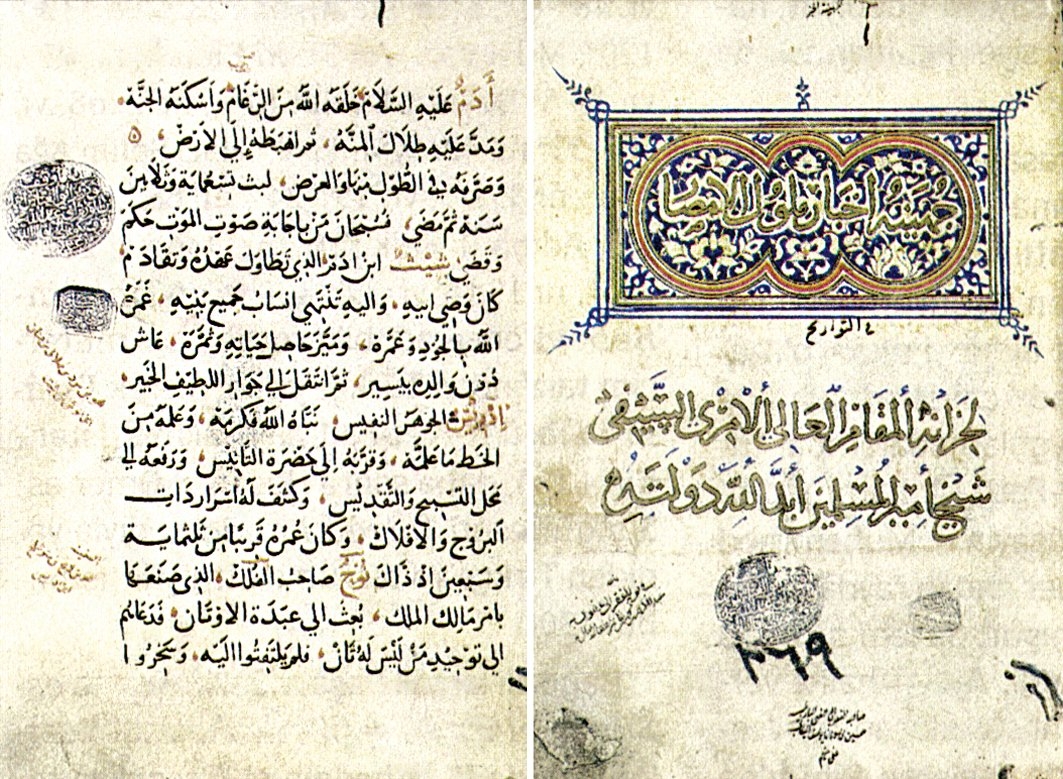 جهينة أخبار ملوك الامصا
في التواريخ
لخزانة المقام العالي الأمرى السيفي
شيخ أمير المسلمين أيد الله دولته
٣٦٩
أدم عليه السلام خلقه الله من الرغام وأسكنه الجنة،
ومد عليه ظلال المنة، ثم اهبطه إلى الارض،
وصرفه في الطول منها والعرض، لبث تسعماية وثلاثين
سنة ثم مضى، فسبحان من باجابة صوت الموت حكم
وقضى شيث ابن ادم الذي تطاول عهده وتقادم
كان وصي ابيه، واليه تنتهي انساب جميع بنيه، غمره
الله بالجود وعمره، وميز حاصل حياته وثمره، عاش
دون والده بيسير، ثم انتقل الى جوار اللطيف الخبير،
إدريس الجوهر النفيس، نباه الله فكرمه، وعلمه من
الخط ما علمه، وقربه إلى حضرة التانيس، ورفعه الى
محل التسبيح والتقديس، وكشف له اسرار ذات
البروج والافلاك، وكان عمره قريبا من ثلثماية
وسبعين اذ ذاك نوح صاحب الفلك، الذي صنعها
بامر مالك الملك، بعث الى عبدة الاوثان، فدعاهم
الى توحيد من ليس له ثان، فلم يلتفتوا اليه، وسخروا